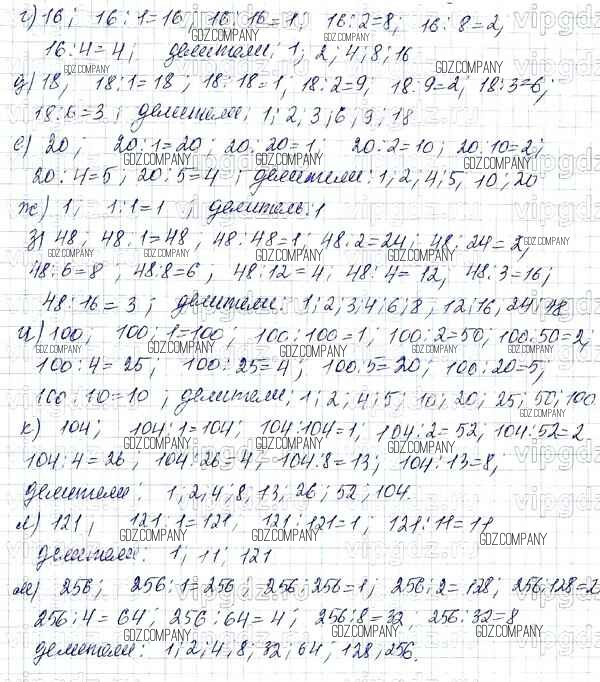 г) 16; 16:1=16; 16:16=1; 16:2=8; 16:8=2;
16:4=4; делители: 1; 2; 4; 8; 16
д) 18; 18:1=18; 18:18=1; 18:2=9; 18:9=2; 18:3=6;
18:6=3; делители: 1; 2; 3; 6; 9; 18
е) 20; 20:1=20; 20:20=1; 20:2=10; 20:10=2;
20:4=5; 20:5=4; делители: 1; 2; 4; 5; 10; 20
ж) 1; 1:1=1; делитель: 1
з) 48; 48:1=48; 48:48=1; 48:2=24; 48:24=2;
48:6=8; 48:8=6; 48:12=4; 48:4=12; 48:3=16;
48:16=3; делители: 1; 2; 3; 4; 6; 8; 12; 16; 24; 48
и) 100; 100:1=100; 100:100=1; 100:2=50; 100:50=2;
100:4=25; 100:25=4; 100:5=20; 100:20=5;
100:10=10; делители: 1; 2; 4; 5; 10; 20; 25; 50; 100
к) 104; 104:1=104; 104:104=1; 104:2=52; 104:52=2
104:4=26; 104:26=4; 104:8=13; 104:13=8;
делители: 1; 2; 4; 8; 13; 26; 52; 104.
л) 121; 121:1=121; 121:121=1; 121:11=11
делители: 1; 11; 121
м) 256; 256:1=256; 256:256=1; 256:2=128; 256:128=2
256:4=64; 256:64=4; 256:8=32; 256:32=8
делители: 1; 2; 4; 8; 32; 64; 128; 256.